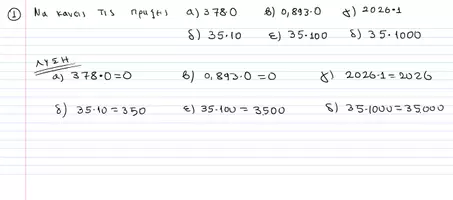 ① Να κανεις τις πραξεις α) 378·0 β) 0,893·0 γ) 2026·1
δ) 35·10 ε) 35·100 δ) 35·1000
ΛΥΣΗ
α) 378·0=0 β) 0,893·0=0 γ) 2026·1=2026
δ) 35·10=350 ε) 35·100=3500 δ) 35·1000=35.000